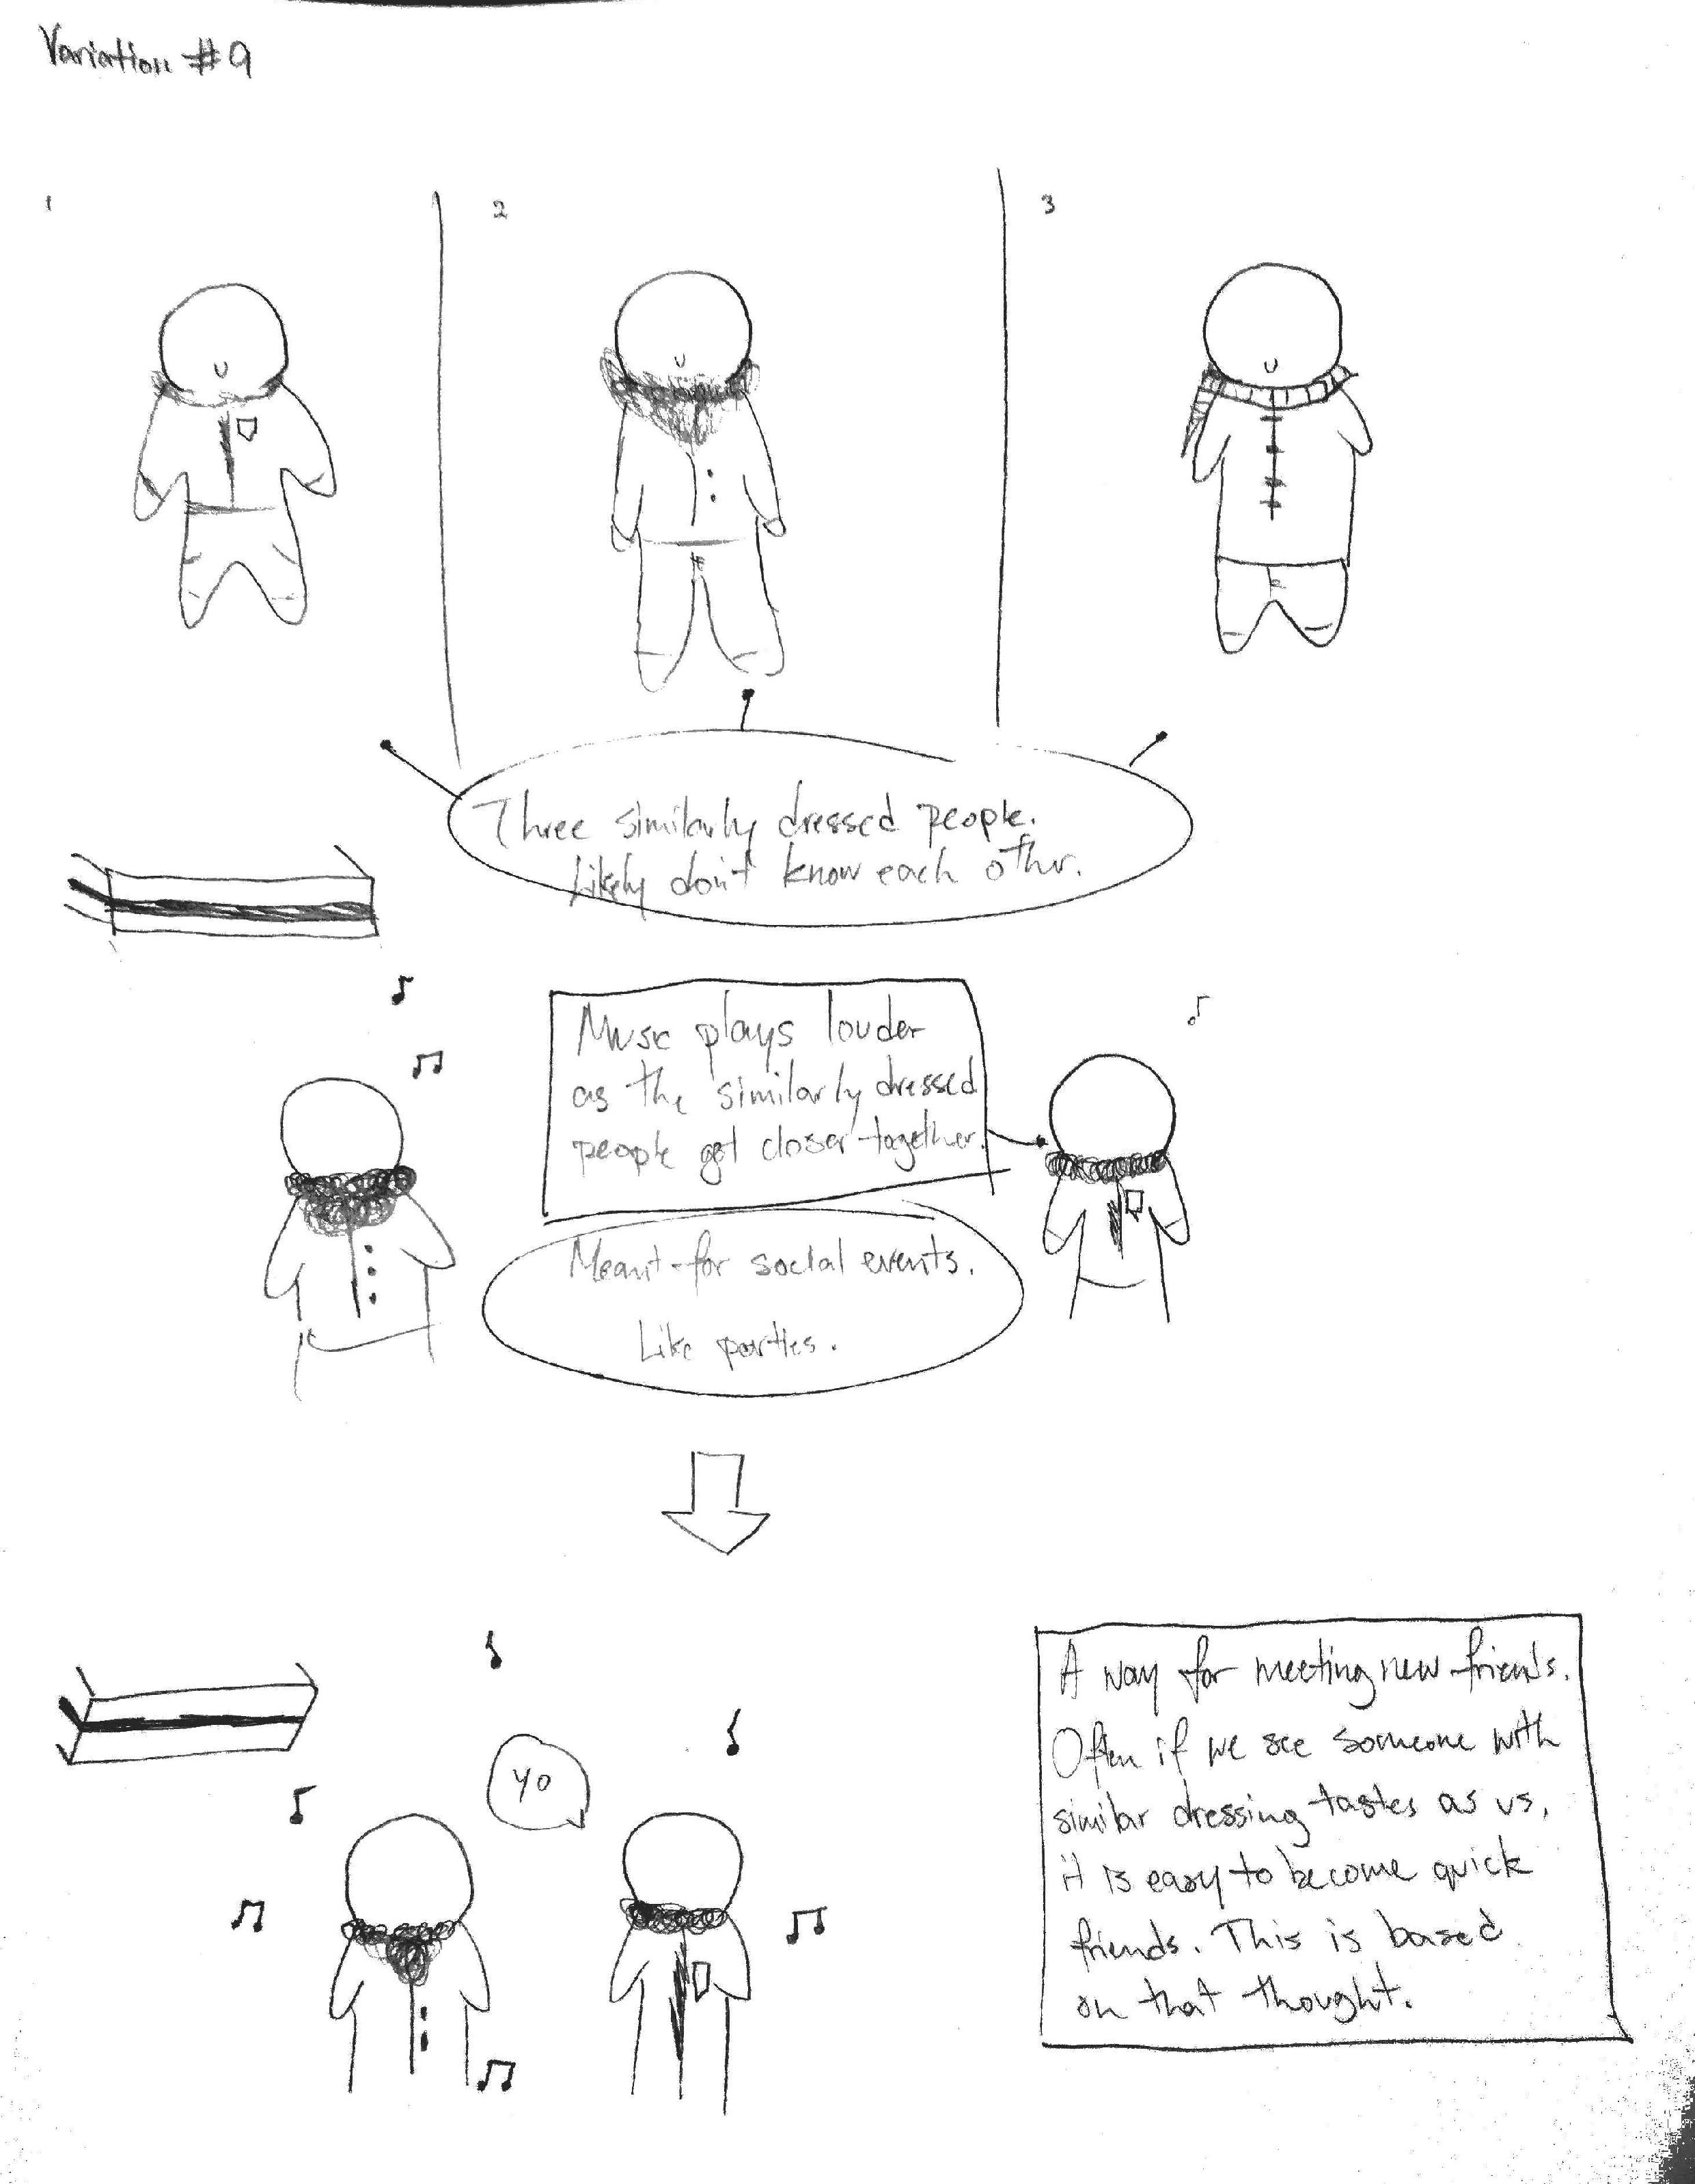 Variation #9
1
2
3
Three similarly dressed people.
Likely don't know each other.
Music plays louder
as the similarly dressed
people get closer together.
Meant for social events.
Like parties.
YO
A way for meeting new friends.
Often if we see someone with
similar dressing tastes as us,
it is easy to become quick
friends. This is based
on that thought.